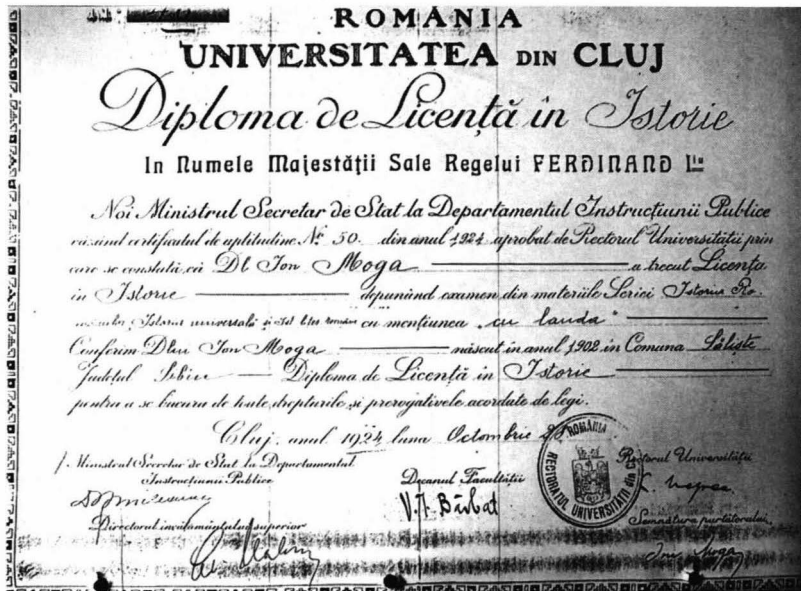 ROMÂNIA
UNIVERSITATEA DIN CLUJ
Diploma de Licență în Istorie
In Numele Majestății Sale Regelui FERDINAND I-iu
Noi Ministrul Secretar de Stat la Departamentul Instrucțiunii Publice
văzând certificatul de aptitudine No 50 din anul 1924 aprobat de Rectorul Universității prin
care se constată că Dl Ion Moga a trecut Licența
în Istorie depunând examen din materiile Seriei Istoria Ro
mânilor, Istoria universală și cu mențiunea "cu laudă"
Conferim Dlui Ion Moga născut în anul 1902 în Comuna Săliște
Județul Sibiu Diploma de Licență în Istorie
pentru a se bucura de toate drepturile și prerogativele acordate de legi.
Cluj, anul 1924 luna Octombrie
Ministrul Secretar de Stat la Departamentul
Instrucțiunii Publice
Decanul Facultății
Rectorul Universității
V. A. Bărbat
ROMÂNIA
RECTORATUL UNIVERSITĂȚII din
Directorul învățământului superior
Semnătura purtătorului
Ion Moga